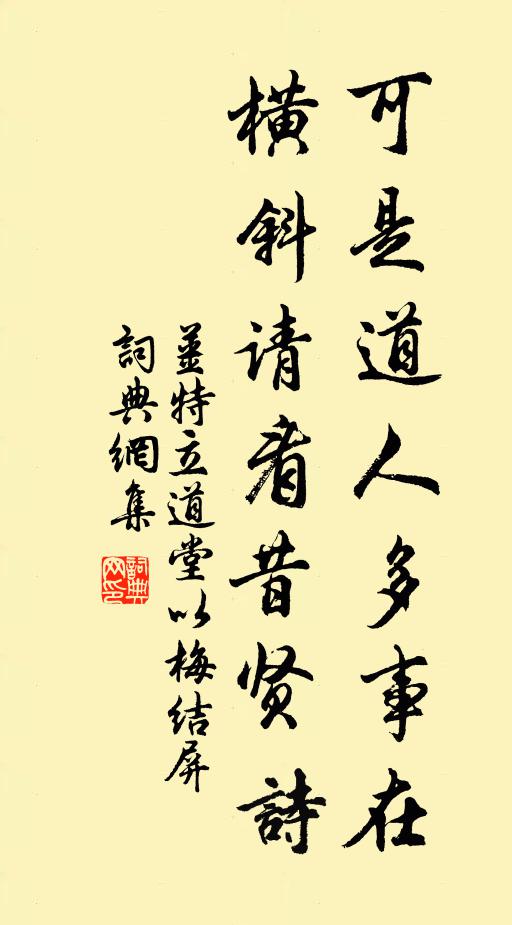 可是道人多事在
横斜请看昔贤詩
姜特立道堂以梅结屏
詞典網集
詞典网印